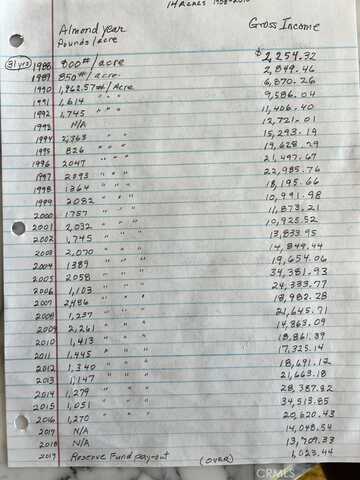 14 Acres 1988-2018
Almond year Gross Income
Pounds/acre
(31 yrs) 1988 800#/acre $2,254.32
1989 850#/acre 2,849.46
1990 1,962.57#/Acre 6,870.26
1991 1,614 " " " 9,586.04
1992 1,745 " " " 11,406.40
1993 N/A 13,721.01
1994 2,363 " " " 15,293.19
1995 826 " " " 19,628.29
1996 2047 " " " 21,497.67
1997 2093 " " " 22,985.76
1998 1364 " " " 18,195.66
1999 2082 " " " 10,991.98
2000 1757 " " " 11,873.21
2001 2,032 " " " 10,925.52
2002 1,745 " " " 13,833.95
2003 2,070 " " " 14,849.44
2004 1389 " " " 19,654.06
2005 2058 " " " 34,381.93
2006 1,103 " " " 24,333.77
2007 2,486 " " " 18,982.28
2008 1,237 " " " 21,645.71
2009 2,261 " " " 14,363.09
2010 1,413 " " " 18,861.39
2011 1,445 " " " 17,325.14
2012 1,340 " " " 18,691.12
2013 1,147 " " " 21,663.18
2014 1,279 " " " 28,387.82
2015 1,051 " " " 34,513.85
2016 1,270 " " " 20,620.43
2017 N/A 14,048.54
2018 N/A 13,709.33
2019 Reserve Fund pay-out (OVER) 1,023.44
CRMLS